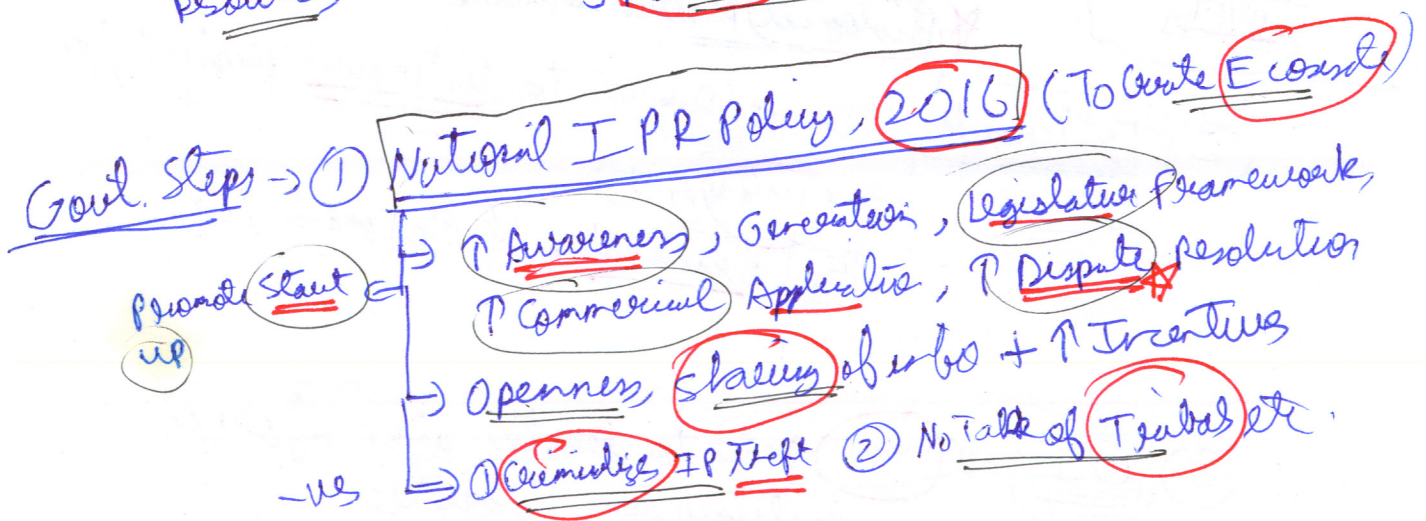 Govt. Steps → ① National IPR Policy, 2016 (To Create Ecosyste)
→ ↑ Awareness, Generation, Legislative Framework,
Promote Start up
↑ Commercial Application, ↑ Dispute Resolution
→ Openness, Sharing of info + ↑ Incentives
-ves → ① Criminalizes IP Theft ② No Talk of Tribals etc.